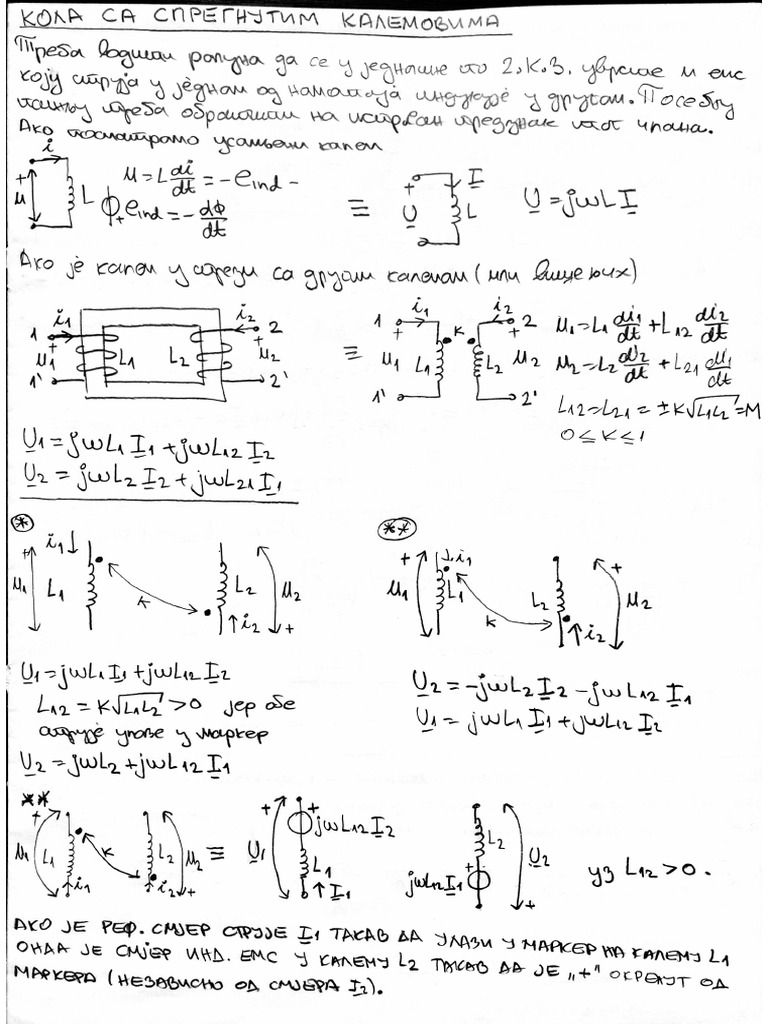 КОЛА СА СПРЕГНУТИМ КАЛЕМОВИМА
Треба водити рачуна да се у једначине по 2.К.З. уврсте и емс
коју струја у једном од намотаја индукује у другом. Посебну
пажњу треба обратити на исправан предзнак тог члана.
Ако посматрамо усамљени калем
i
+
u
L
u = L di/dt = -e_ind -
ϕ + e_ind = - dΦ/dt
≡
I
+
U
L
U = jωL I
Ако је калем у спрези са другим калемом (или више њих)
1 i1 i2 2
+ u1 L1 L2 + u2
1' 2'
≡
1 i1 k i2 2
+ u1 L1 L2 + u2
1' 2'
u1 = L1 di1/dt + L12 di2/dt
u2 = L2 di2/dt + L21 di1/dt
L12 = L21 = ± k√L1L2 = M
0 ≤ k ≤ 1
U1 = jωL1 I1 + jωL12 I2
U2 = jωL2 I2 + jωL21 I1
*
i1 + u1 L1 k L2 u2 + i2
U1 = jωL1 I1 + jωL12 I2
L12 = k√L1L2 > 0 јер обе
струје улазе у маркер
U2 = jωL2 + jωL12 I1
**
+ i1 u1 L1 k L2 + u2 i2
U2 = -jωL2 I2 - jωL12 I1
U1 = jωL1 I1 + jωL12 I2
**
+ u1 L1 k L2 u2 + i1 i2
≡
+ U1 + jωL12 I2 L1 I1
L2 U2 jωL12 I1 + +
уз L12 > 0.
АКО ЈЕ РЕФ. СМЈЕР СТРУЈЕ I1 ТАКАВ ДА УЛАЗИ У МАРКЕР НА КАЛЕМУ L1
ОНДА ЈЕ СМЈЕР ИНД. ЕМС У КАЛЕМУ L2 ТАКАВ ДА ЈЕ „+" ОКРЕНУТ ОД
МАРКЕРА (НЕЗАВИСНО ОД СМЈЕРА I2).